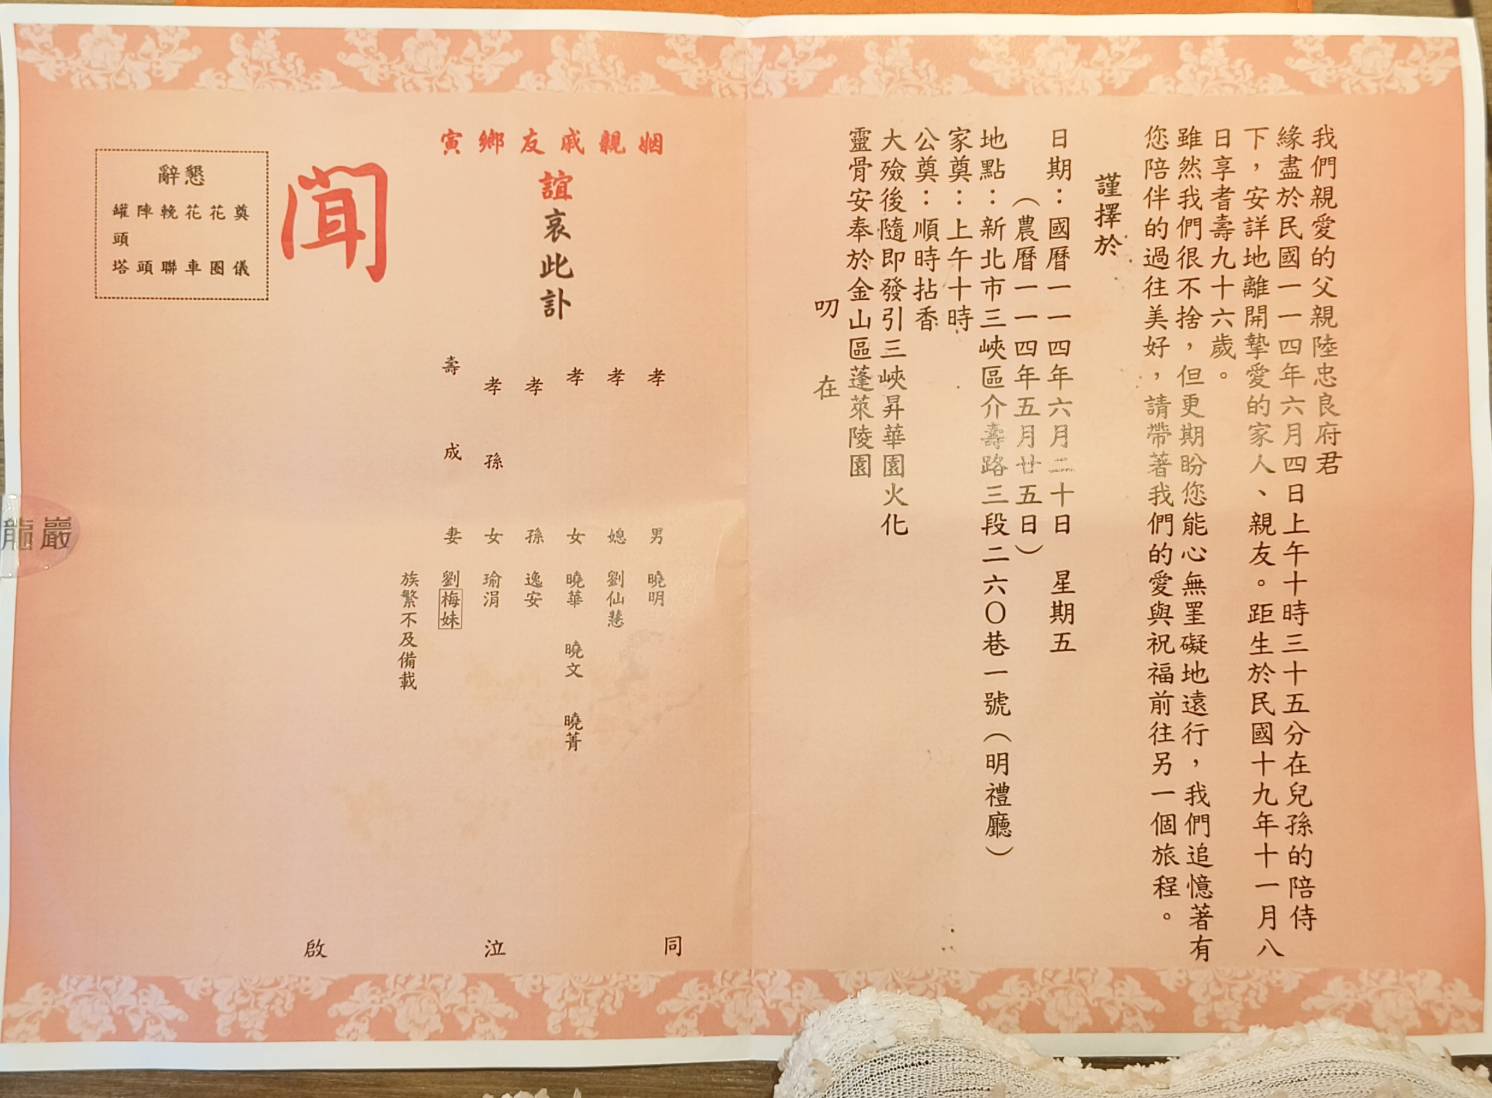 我們親愛的父親陸忠良府君
緣盡於民國一一四年六月四日上午十時三十五分在兒孫的陪侍
下，安詳地離開摯愛的家人、親友。距生於民國十九年十一月八
日享耆壽九十六歲。
雖然我們很不捨，但更期盼您能心無罣礙地遠行，我們追憶著有
您陪伴的過往美好，請帶著我們的愛與祝福前往另一個旅程。
謹擇於
日期：國曆一一四年六月二十日　星期五
（農曆一一四年五月廿五日）
地點：新北市三峽區介壽路三段二六〇巷一號（明禮廳）
家奠：上午十時
公奠：順時拈香
大殮後隨即發引三峽昇華園火化
靈骨安奉於金山區蓬萊陵園
叨在
姻親戚友鄉寅
誼哀此訃
聞
孝男　曉明
孝媳　劉仙慧
孝女　曉華　曉文　曉菁
孝孫　逸安
孝孫女　瑜涓
壽成妻　劉梅妹
族繁不及備載
同泣啟
懇辭
奠儀
花圈
花車
輓聯
陣頭
罐頭塔
龍巖